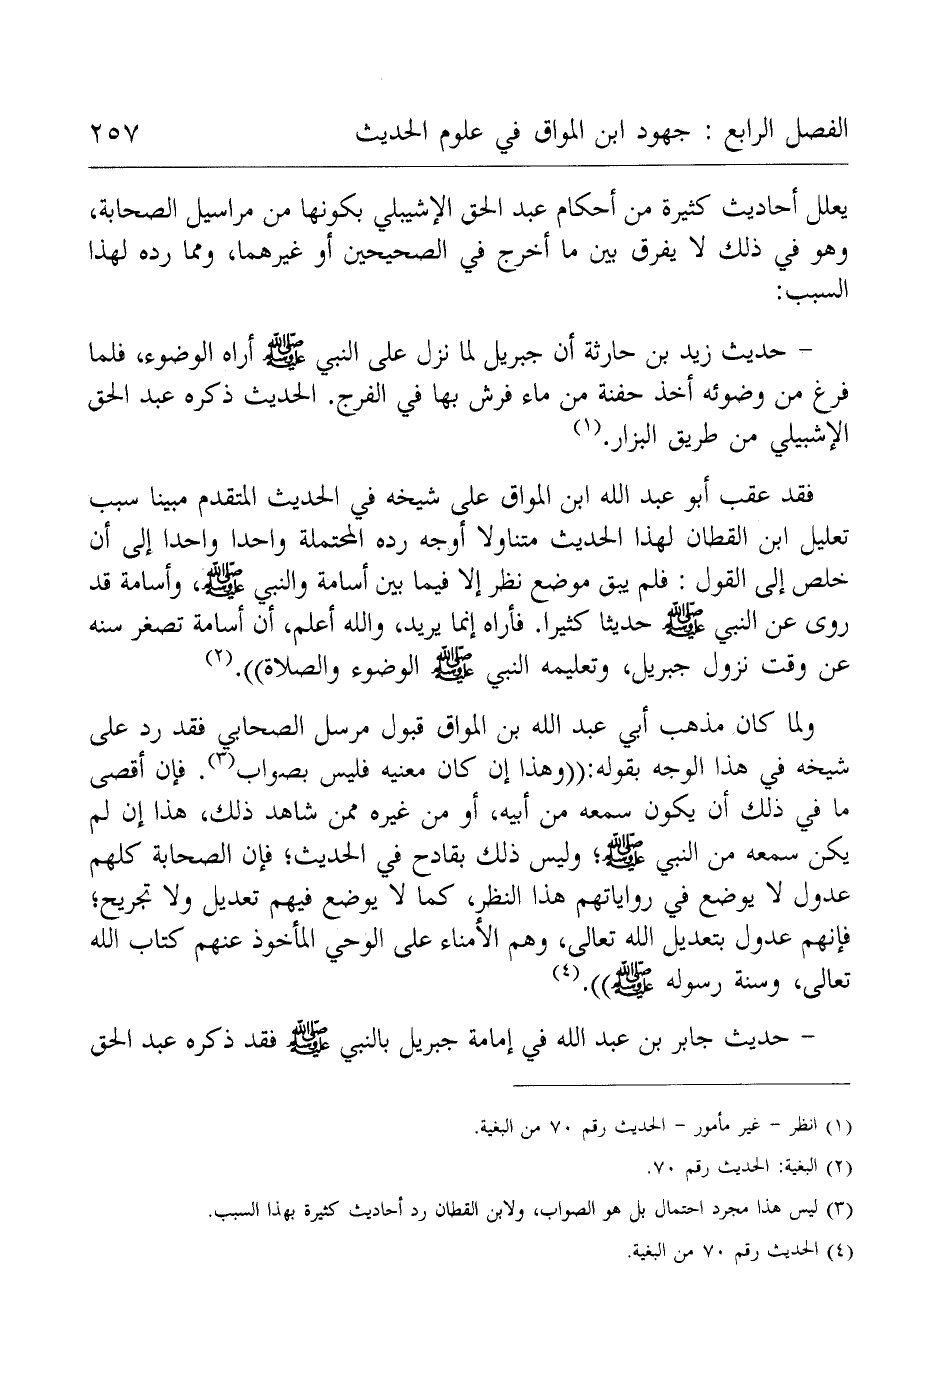 الفصل الرابع : جهود ابن المواق في علوم الحديث ٢٥٧
يعلل أحاديث كثيرة من أحكام عبد الحق الإشبيلي بكونها من مراسيل الصحابة،
وهو في ذلك لا يفرق بين ما أخرج في الصحيحين أو غيرهما، ومما رده لهذا
السبب:
- حديث زيد بن حارثة أن جبريل لما نزل على النبي ﷺ أراه الوضوء، فلما
فرغ من وضوئه أخذ حفنة من ماء فرش بها في الفرج. الحديث ذكره عبد الحق
الإشبيلي من طريق البزار.(١)
فقد عقب أبو عبد الله ابن المواق على شيخه في الحديث المتقدم مبينا سبب
تعليل ابن القطان لهذا الحديث متناولا أوجه رده المحتملة واحدا واحدا إلى أن
خلص إلى القول : فلم يبق موضع نظر إلا فيما بين أسامة والنبي ﷺ، وأسامة قد
روى عن النبي ﷺ حديثا كثيرا. فأراه إنما يريد، والله أعلم، أن أسامة تصغر سنه
عن وقت نزول جبريل، وتعليمه النبي ﷺ الوضوء والصلاة)).(٢)
ولما كان مذهب أبي عبد الله بن المواق قبول مرسل الصحابي فقد رد على
شيخه في هذا الوجه بقوله:((وهذا إن كان معنيه فليس بصواب(٣). فإن أقصى
ما في ذلك أن يكون سمعه من أبيه، أو من غيره ممن شاهد ذلك، هذا إن لم
يكن سمعه من النبي ﷺ؛ وليس ذلك بقادح في الحديث؛ فإن الصحابة كلهم
عدول لا يوضع في رواياتهم هذا النظر، كما لا يوضع فيهم تعديل ولا تجريح؛
فإنهم عدول بتعديل الله تعالى، وهم الأمناء على الوحي المأخوذ عنهم كتاب الله
تعالى، وسنة رسوله ﷺ)).(٤)
- حديث جابر بن عبد الله في إمامة جبريل بالنبي ﷺ فقد ذكره عبد الحق
(١) انظر - غير مأمور - الحديث رقم ٧٠ من البغية.
(٢) البغية: الحديث رقم ٧٠.
(٣) ليس هذا مجرد احتمال بل هو الصواب، ولابن القطان رد أحاديث كثيرة بهذا السبب.
(٤) الحديث رقم ٧٠ من البغية.